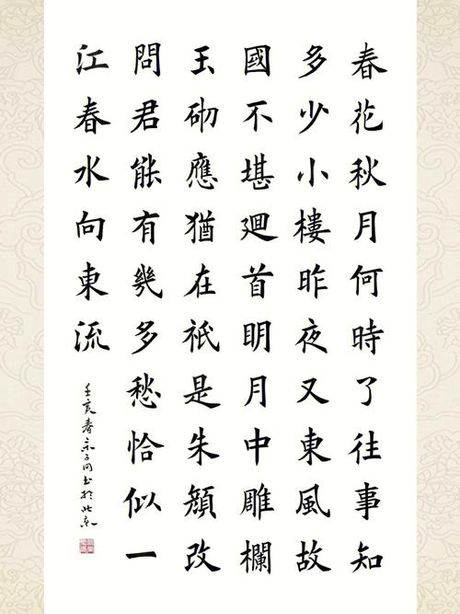 春花秋月何時了往事知
多少小樓昨夜又東風故
國不堪廻首明月中雕欄
玉砌應猶在祇是朱顔改
問君能有幾多愁恰似一
江春水向東流
亥春书於北京